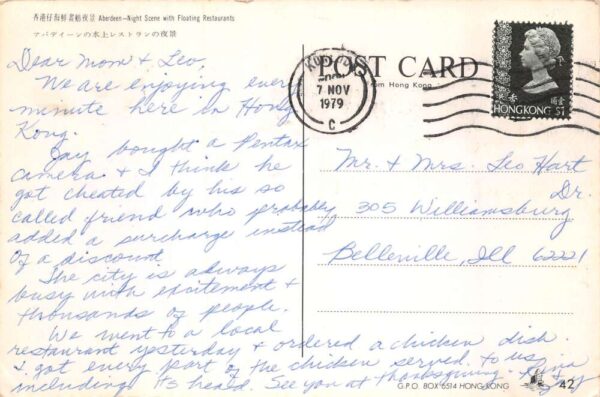 香港仔海鮮畫舫夜景 Aberdeen—Night Scene with Floating Restaurants
アバディーンの水上レストランの夜景
Dear Mom & Leo,
We are enjoying every
minute here in Hong
Kong.
Jay bought a Pentax
camera & I think he
got cheated by his so
called friend who probably
added a surcharge instead
of a discount.
The city is always
busy with excitement &
thousands of people.
We went to a local
restaurant yesterday & ordered a chicken dish.
& got every part of the chicken served to us
including its head. See you at thanksgiving.
Jay
POST CARD
from Hong Kong
7 NOV
1979
C
香港
HONG KONG $1
Mr. & Mrs. Leo Hart
305 Williamsburg Dr.
Belleville, Ill 62221
G.P.O. BOX 6514 HONG KONG
42